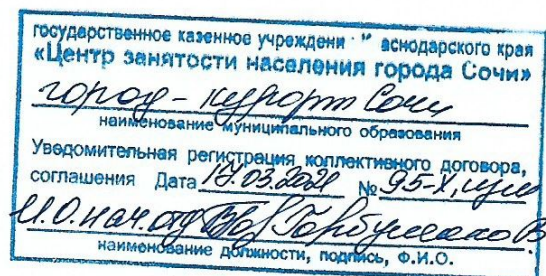 государственное казенное учреждени аснодарского края
«Центр занятости населения города Сочи»
город-курорт Сочи
наименование муниципального образования
Уведомительная регистрация коллективного договора,
соглашения Дата 17.03.2021 № 95-Х,
И.О. нач. отд
наименование должности, подпись, Ф.И.О.